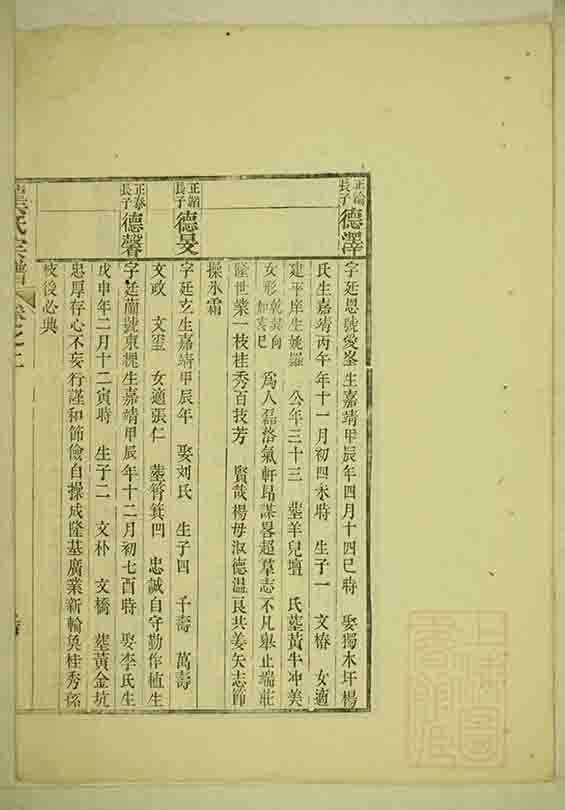 正論長子 德澤
字廷恩號愛峯生嘉靖甲辰年四月十四巳時 娶獨木圩楊
氏生嘉靖丙午年十一月初四未時 生子一 文椿 女適
建平岸生姚羅 公年三十三 塟羊兒壇 氏塟黃牛冲美
女形乾巽向加亥巳 為人磊落氣軒昻謀畧超羣志不凡舉止端莊
隆世業一枝桂秀百枝芳 賢哉楊毋淑德溫良共姜矢志節
操氷霜
正諧長子 德旻
字廷玄生嘉靖甲辰年 娶刘氏 生子四 千壽 萬壽
文政 文璽 女適張仁 塟筲箕凹 忠誠自守勤作植生
正泰長子 德馨
字廷蘭號東槐生嘉靖甲辰年十二月初七酉時 娶李氏生
戊申年二月十二寅時 生子二 文朴 文橋 塟黃金坑
忠厚存心不妄行謹和節儉自操成隆基廣業新輪奐桂秀孫
枝後必興
氏宗譜 卷之二